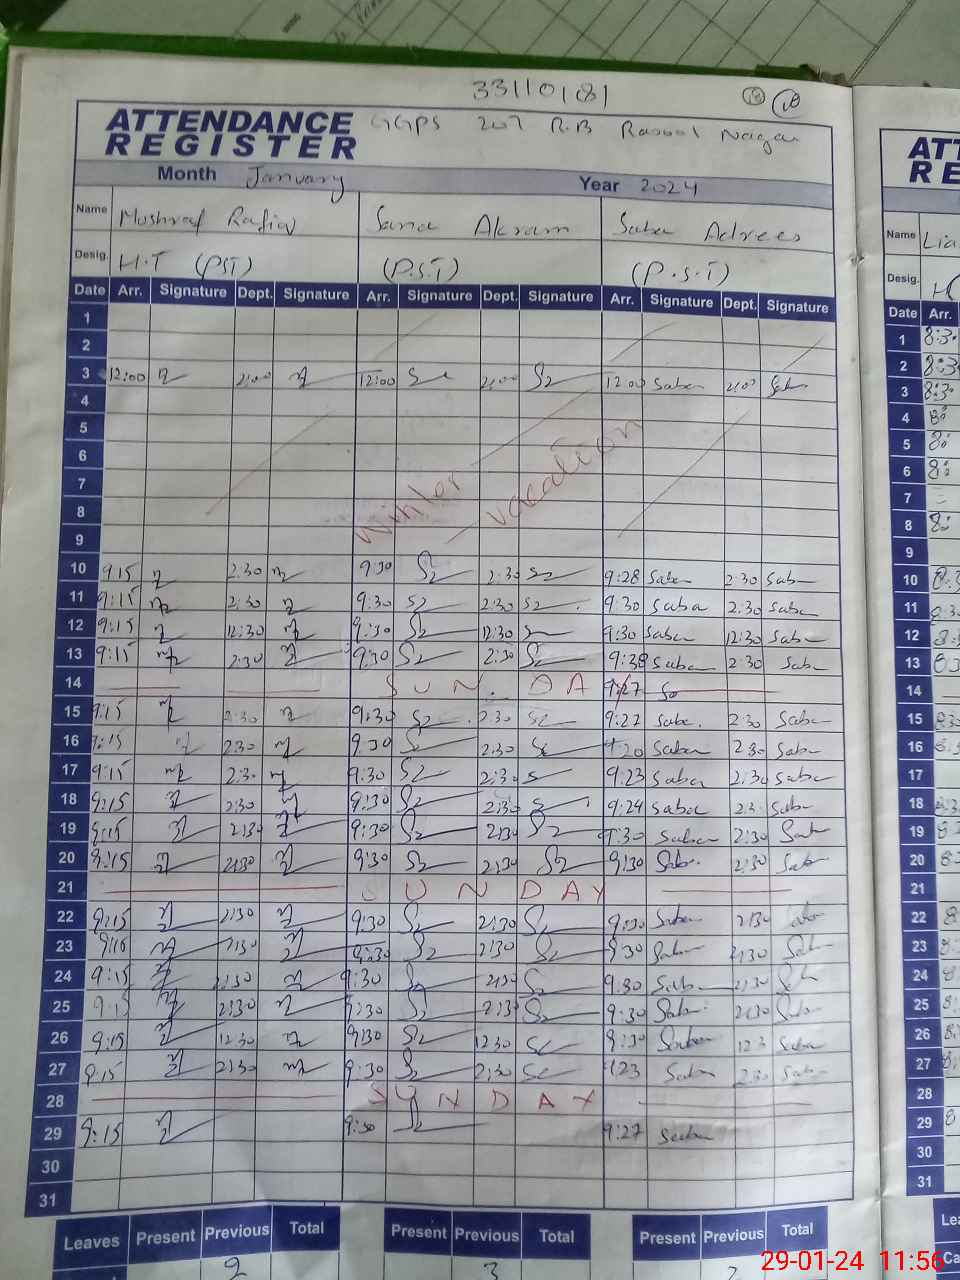 33110181
18 18
ATTENDANCE REGISTER GGPS 207 R.B Rasool Nagar
Month January Year 2024
Name Mushraf Rafiq Sana Akram Saba Adrees
Desig. H.T (PST) (P.S.T) (P.S.T)
Date Arr. Signature Dept. Signature Arr. Signature Dept. Signature Arr. Signature Dept. Signature
1
2
3 12:00 2:00 12:00 2:00 12:00 Saba 2:00 Saba
4
5
6
7
8
9
Winter vacation
10 9:15 2:30 9:30 2:30 9:28 Saba 2:30 Saba
11 9:15 2:30 9:30 2:30 9:30 Saba 2:30 Saba
12 9:15 12:30 9:30 12:30 9:30 Saba 12:30 Saba
13 9:15 2:30 9:30 2:30 9:38 Saba 2:30 Saba
14 SUN. DA 9:27 Sa
15 9:15 2:30 9:30 2:30 9:22 Saba. 2:30 Saba
16 9:15 2:30 9:30 2:30 9:20 Saba 2:30 Saba
17 9:15 2:30 9:30 2:30 9:23 Saba 2:30 Saba
18 9:15 2:30 9:30 2:30 9:24 Saba 2:3 Saba
19 9:15 2:30 9:30 2:30 9:30 Saba 2:30 Saba
20 9:15 2:30 9:30 2:30 9:30 Saba 2:30 Saba
21 SUNDAY
22 9:15 2:30 9:30 2:30 9:30 Saba 2:30 Saba
23 9:16 2:30 9:30 2:30 9:30 Saba 2:30 Saba
24 9:15 2:30 9:30 2:30 9:30 Saba 2:30 Saba
25 9:15 2:30 9:30 2:30 9:30 Saba 2:30 Saba
26 9:15 12:30 9:30 12:30 9:30 Saba 12:3 Saba
27 9:15 2:30 9:30 2:30 9:23 Saba 2:30 Saba
28 SUNDAY
29 9:15 9:30 9:27 Saba
30
31
Leaves Present Previous Total Present Previous Total Present Previous Total
2 3
ATT
RE
Name Lia
Desig. H(
Date Arr.
1 8:30
2 8:30
3 8:30
4 8:
5 8:
6 8:
7
8 8:
9
10
11
12
13
14
15
16
17
18
19
20
21
22
23
24
25
26
27
28
29
30
31
Lea
Ca
29-01-24 11:56